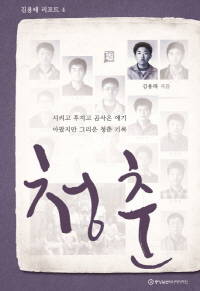 김용택 리포트 4
김용택 지음
시리고 후지고 곰삭은 얘기
아팠지만 그리운 청춘 기록
청춘